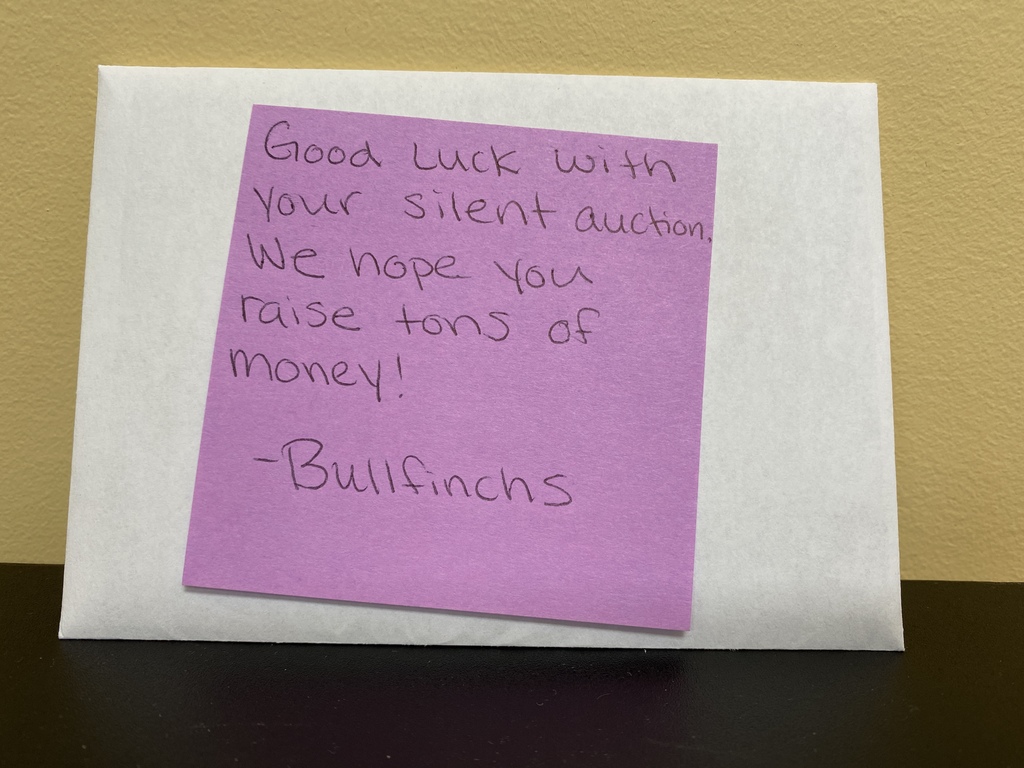 Good Luck with
your silent auction.
We hope you
raise tons of
money!
-Bullfinchs